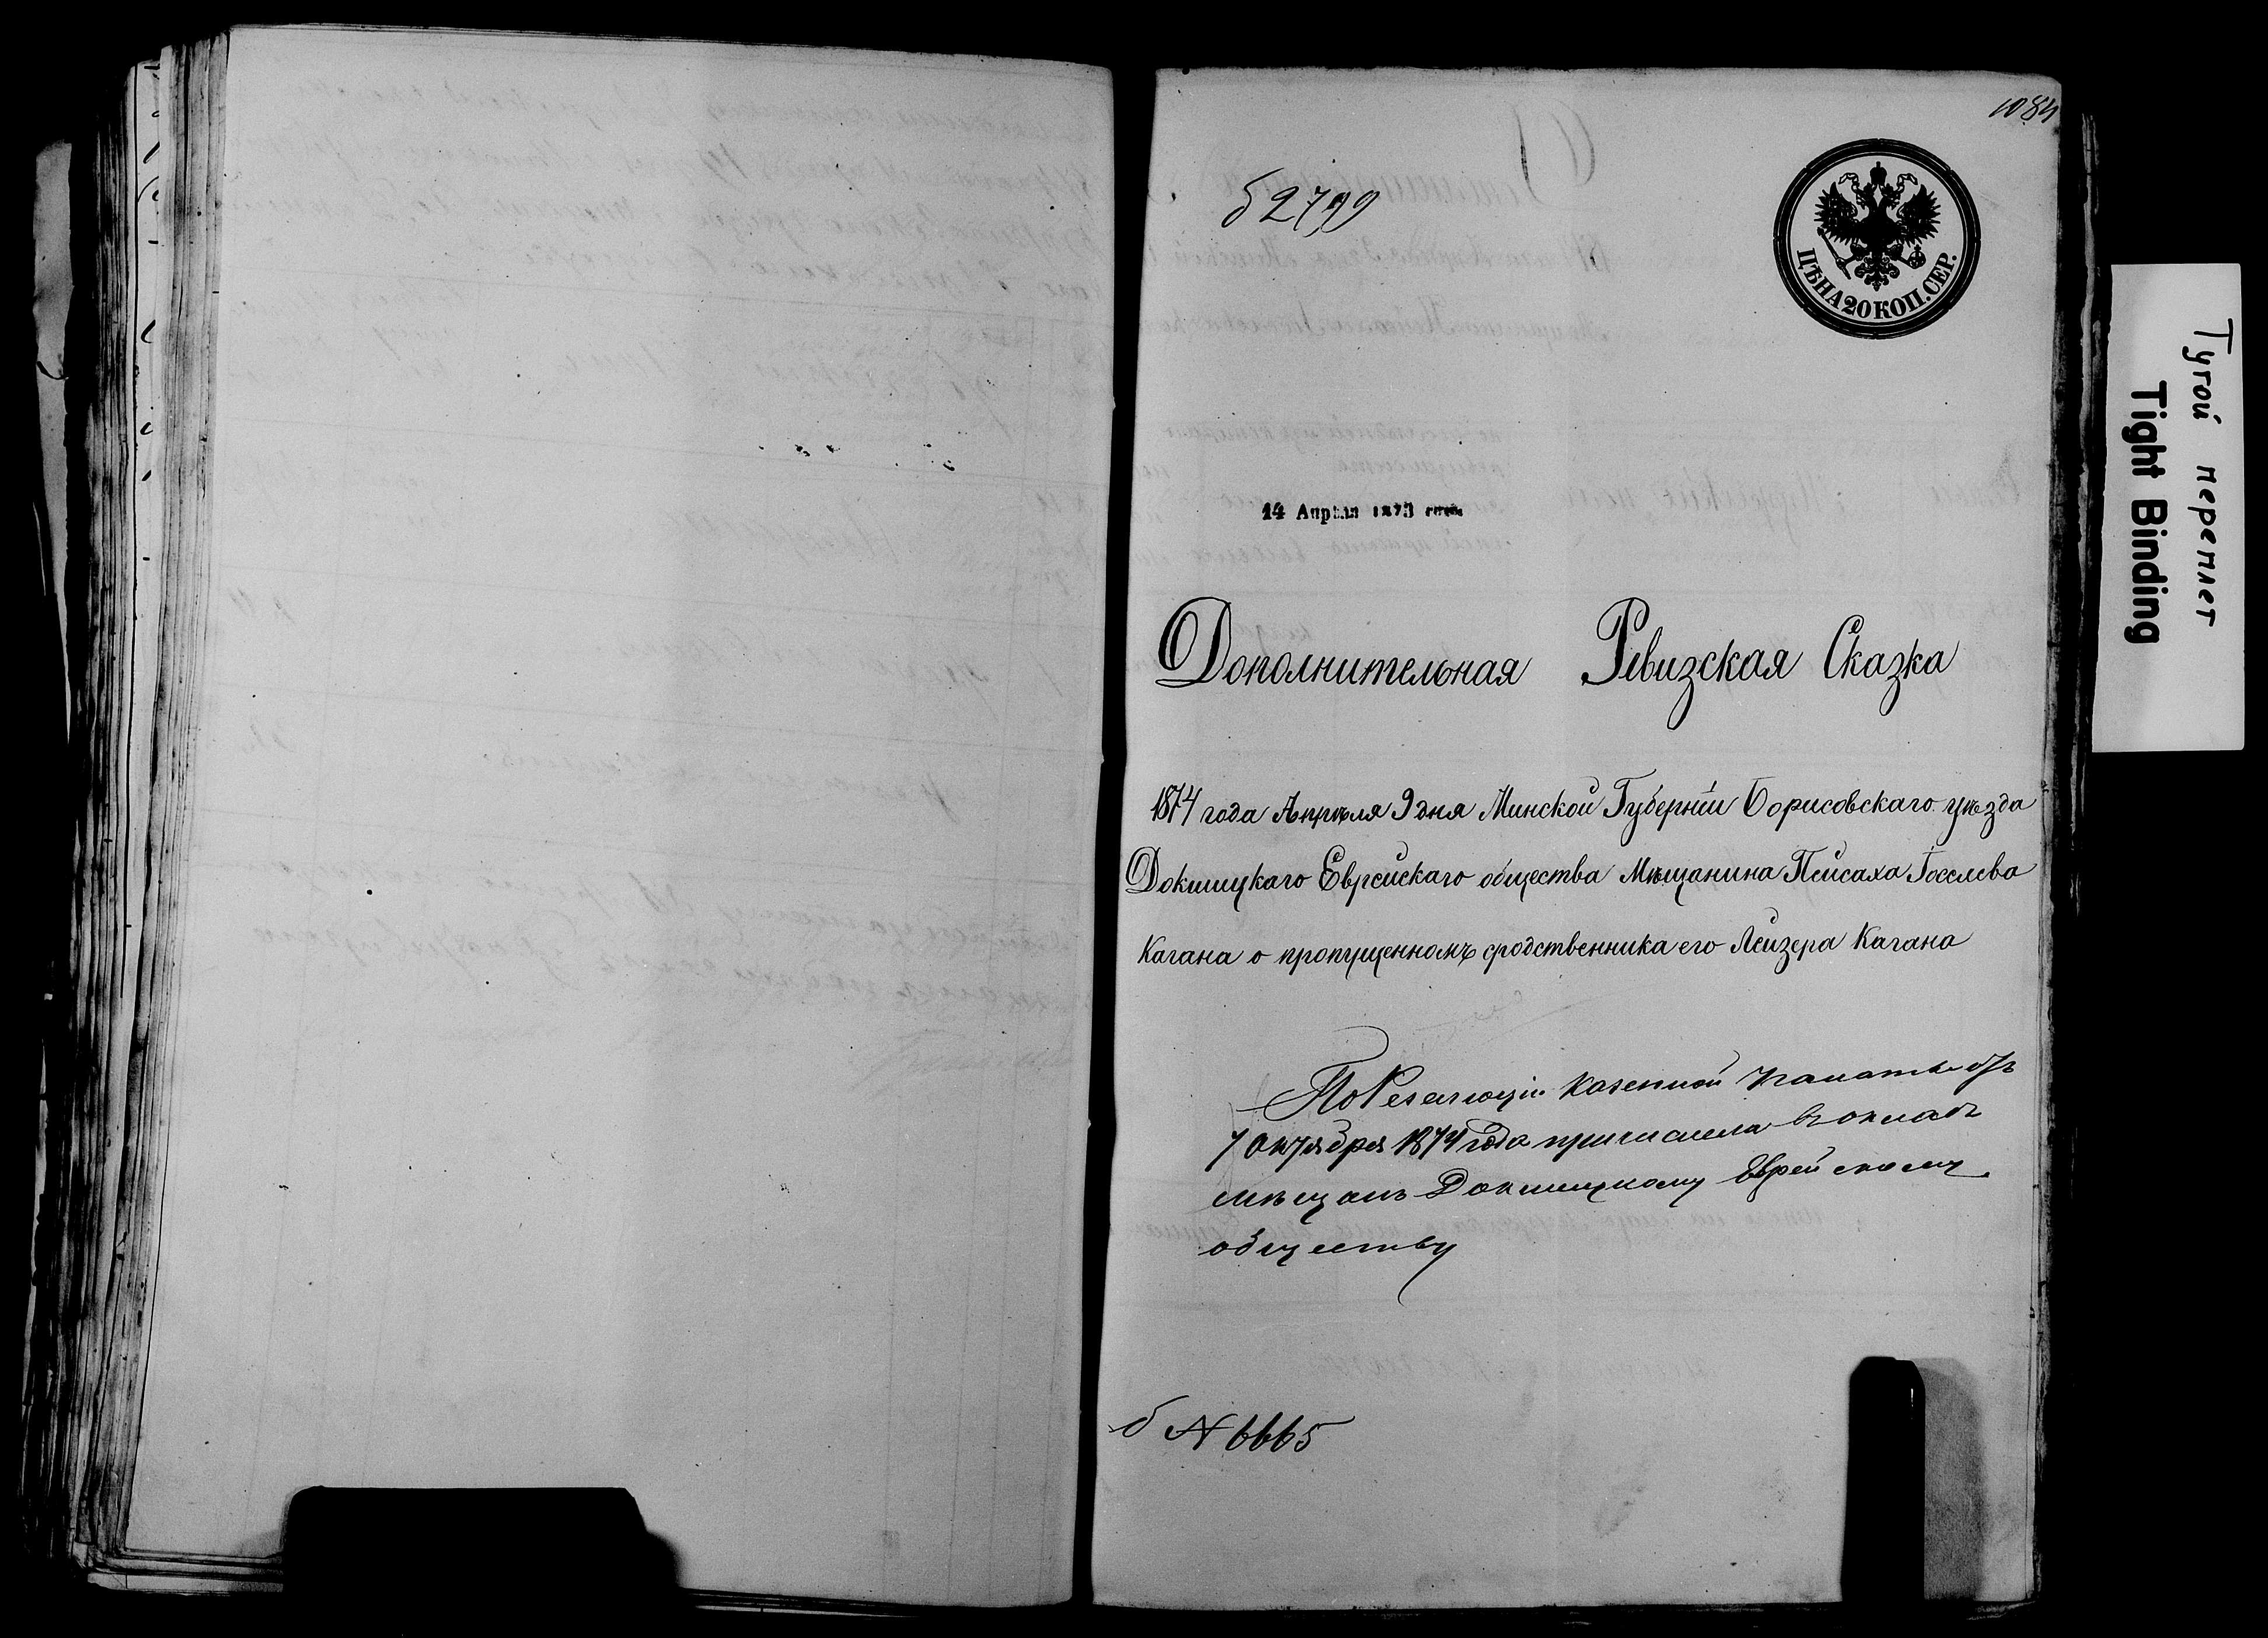 1084
б 2799
ЦѢНА 20 КОП. СЕР.
14 Апрѣля 1873 года
Дополнительная Ревизская Сказка
1874 года Апрѣля 9 дня Минской Губерніи Борисовскаго уѣзда
Докшицкаго Еврейскаго общества Мѣщанина Пейсаха Іоселева
Кагана о пропущенномъ сродственника его Лейзера Кагана
По Резолюціи Казенной Палаты отъ
7 Октября 1874 года причислена въ окладъ
мѣщанъ Докшицкому Еврейскому
обществу
б N 6665
Тугой переплет
Tight Binding